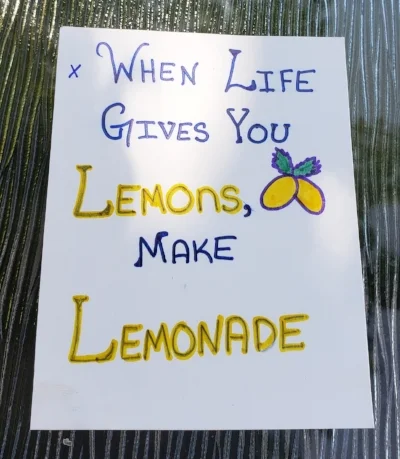 x When Life
Gives You
Lemons,
Make
Lemonade